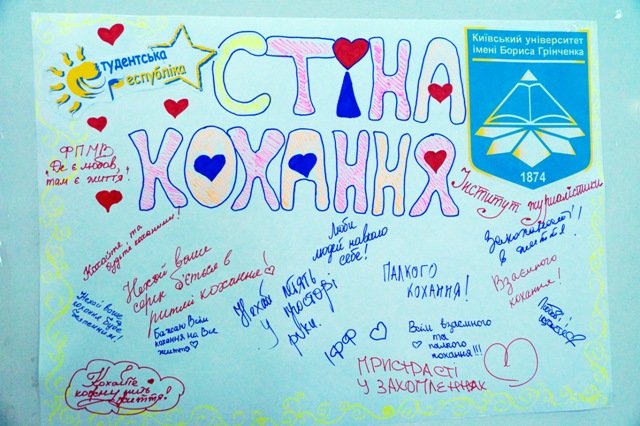 Студентська
Республіка
СТІНА
КОХАННЯ
Київський університет
імені Бориса Грінченка
1874
ФПМВ
"Де є любов,
там є життя"!
Інститут журналістики
Кохайте, та
будьте коханими!
Нехай ваше
серце б'ється в
ритмі кохання!
Люби
людей навколо
себе!
Закоханості!
в життя!
Взаємного
кохання!
ПАЛКОГО
КОХАННЯ!
Нехай ваше
кохання буде
Бажаю Всім
кохання на Все
життя
Нехай
у просторі
руки.
ІФФ
Всім взаємного
та
палкого
кохання!!!
Любові!
ПРИСТРАСТІ
У ЗАХОПЛЕННЯХ
Кохайте
кожну мить
життя!